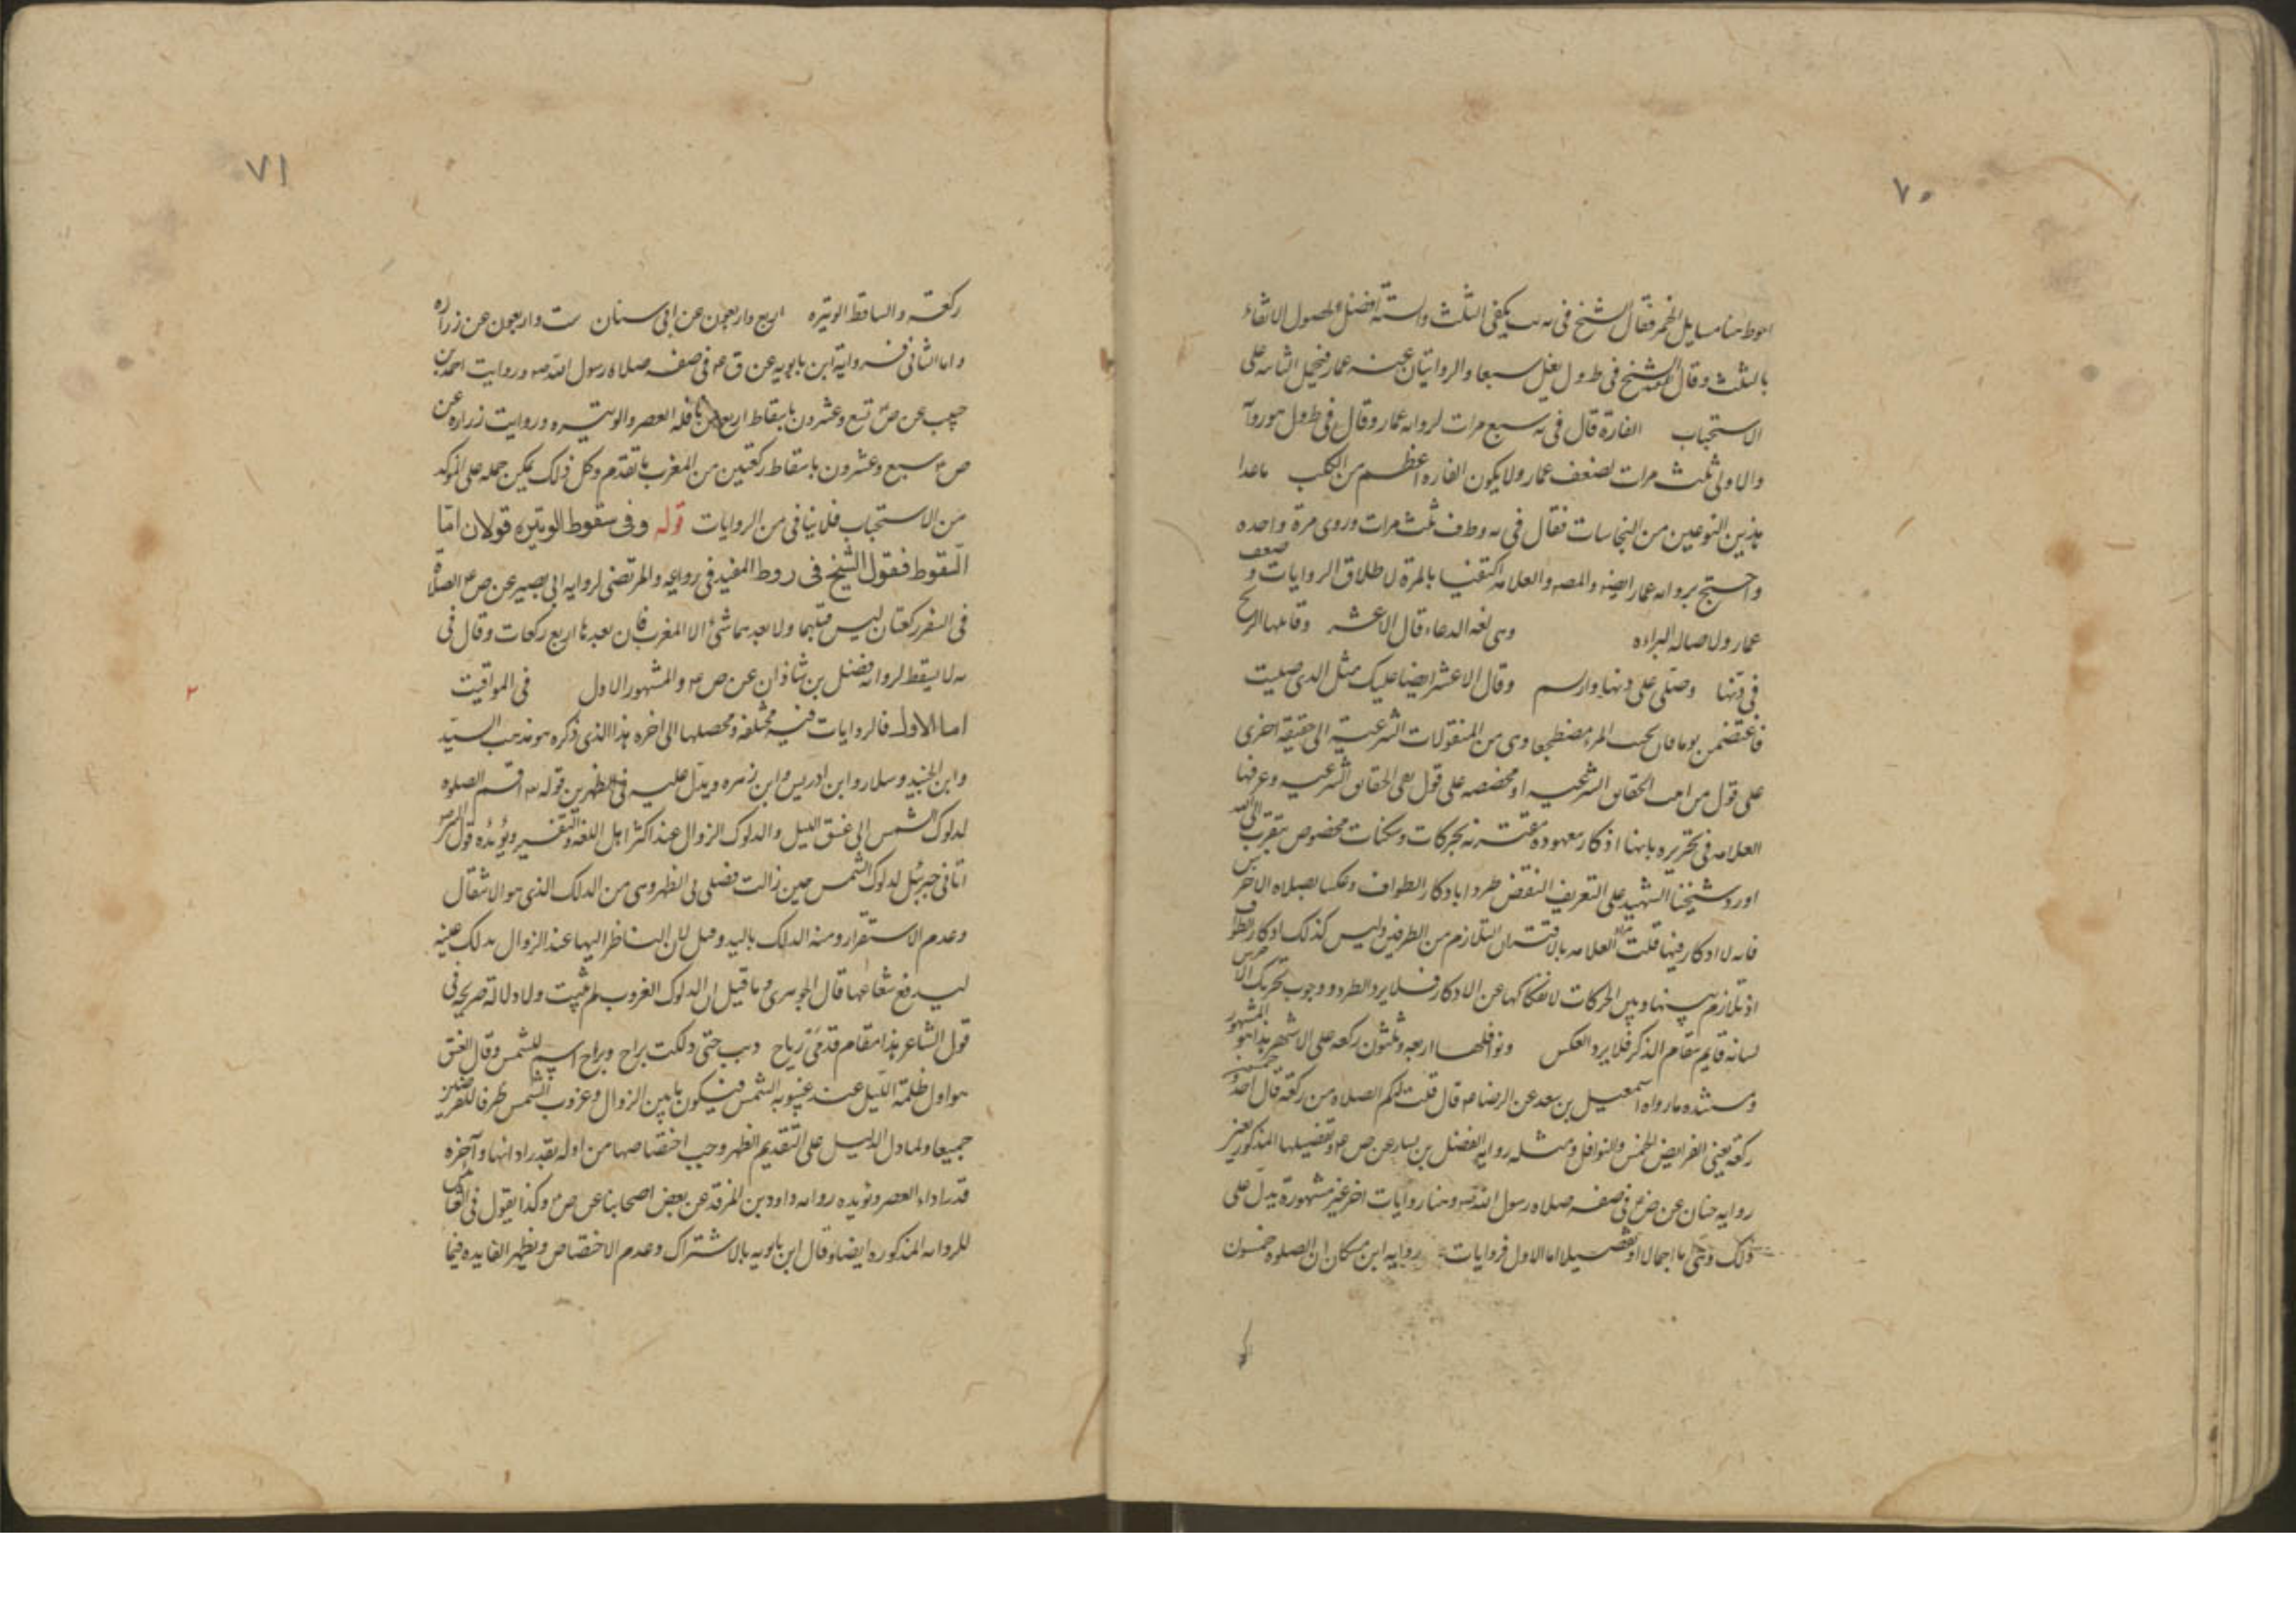 ٧٠
احوط هنا مسايل الخمر فقال الشيخ في يه يب يكفى الثلث والستة افضل ولحصول الانقاء
بالثلث وقال الشيخ في ط ول يغسل سبعا والروايتان عنه عمار فيحمل الثانيه على
الاستحباب الفارة قال في يه سبع مرات لروايه عمار وقال في ط ول هو روآ
والاولى ثلث مرات لضعف عمار ولا يكون الفاره اعظم من الكلب ما عدا
هذين النوعين من النجاسات فقال في يه وط ف ثلث مرات وروى مرة واحده
واحتج بروايه عمار ايضه والمصه والعلامه اكتفيا بالمرة لاطلاق الروايات و ضعف
عمار ولاصاله البراءه وهى لغه الدعاء قال الاعشى وقابلها الريح
في دنها وصلى على دنها وارسم وقال الاعشى ايضا عليك مثل الذى صليت
فاغتضمى يوما فان لجنب المرء مضطجعا وهى من المنقولات الشرعية الى حقيقة اخرى
على قول من اثبت الحقايق الشرعيه او مخصصه على قول نفى الحقايق الشرعيه وعرفها
العلامه فى تحريره بانها اذكار معهوده مقترنه بحركات وسكنات مخصوص يتقرب الى الله
اورد شيخنا الشهيد على التعريف النقض طردا باذكار الطواف وعكسا بصلاه الاخرس
فانه لا اذكار فيها قلت مراد العلامه بالاقتران التلازم من الطرفين وليس كذلك اذكار الطواف
اذ تلازم بينها وبين الحركات لانفكاكها عن الاذكار فلا يرد الطرد ووجوب تحريك الاخرس
لسانه قايم مقام الذكر فلا يرد العكس ونوافلها اربعه وثلثون ركعه على الاشهر هذا هو المشهور
ومستنده ما رواه اسمعيل بن سعد عن الرضا ع قال قلت لكم الصلاه من ركعة قال احد وخمسون
ركعة يعنى الفرايض الخمس والنوافل ومثله روايه الفضل بن يسار عن ص ع وتفصيلها المذكور يعنى
روايه حنان عن ض ع في صفه صلاه رسول الله ص وهنا روايات اخر غير مشهورة يدل على
ذلك وهى اما اجمالا او تفصيلا اما الاول فروايات روايه ابن مسكان ان الصلوه خمسون
٧١
ركعة والساقط الوتيره اربع واربعون عن ابى سنان ست واربعون عن زراره
واما الثانى فروايه ابن بابويه عن ق ع في صفه صلاه رسول الله ص وروايت احمد بن
حبيب عن ص تسع وعشرون باسقاط اربع من نافله العصر والوتيره وروايت زراره عن
ص ع سبع وعشرون باسقاط ركعتين من المغرب ما تقدم وكل ذلك يمكن حمله على الموكد
من الاستحباب فلا ينافى من الروايات قوله وفى سقوط الوتيره قولان امّا
السقوط فقول الشيخ في ر وط المفيد فى روايه والمرتضى لروايه ابى بصير عن ص ع الصلاة
في السفر ركعتان ليس قبلهما ولا بعدهما شئ الا المغرب فان بعدها اربع ركعات وقال فى
يه لا يسقط لروايه فضل بن شاذان عن ص ع والمشهور الاول في المواقيت
٢
اما الاول فالروايات فيه مختلفة ومحصلها الى اخره هذا الذى ذكره هو مذهب السيد
وابن الجنيد وسلار وابن ادريس وابن زهره ويدل عليه في الظهرين قوله تع اقم الصلوه
لدلوك الشمس الى غسق الليل والدلوك الزوال عند اكثر اهل اللغه والتفسير ويؤيده قول
اتانى جبرئيل لدلوك الشمس حين زالت فصلى بى الظهر وهى من الدلك الذى هو الانتقال
وعدم الاستقرار ومنه الدلك باليد وقيل لان الناظر اليها عند الزوال يدلك عينه
ليدفع شعاعها قال الجوهرى وما قيل ان الدلوك الغروب لم يثبت ولا دلالة صريحه فى
قول الشاعر هذا مقام قدمى رباح ذبب حتى دلكت براح وبراح اسم للشمس وقال الغسق
هو اول ظلمة الليل عند غيبوبه الشمس فيكون ما بين الزوال وغروب الشمس ظرفا للفرضين
جميعا ولما دل الدليل على التقديم الظهر وجب اختصاصها من اوله بقدر ادائها وآخره
قدر اداء العصر ويؤيده روايه داود بن فرقد عن بعض اصحابنا عن ص ع وكذا يقول في العشا
للروايه المذكوره ايضا وقال ابن بابويه بالاشتراك وعدم الاختصاص ويظهر الفايده فيما